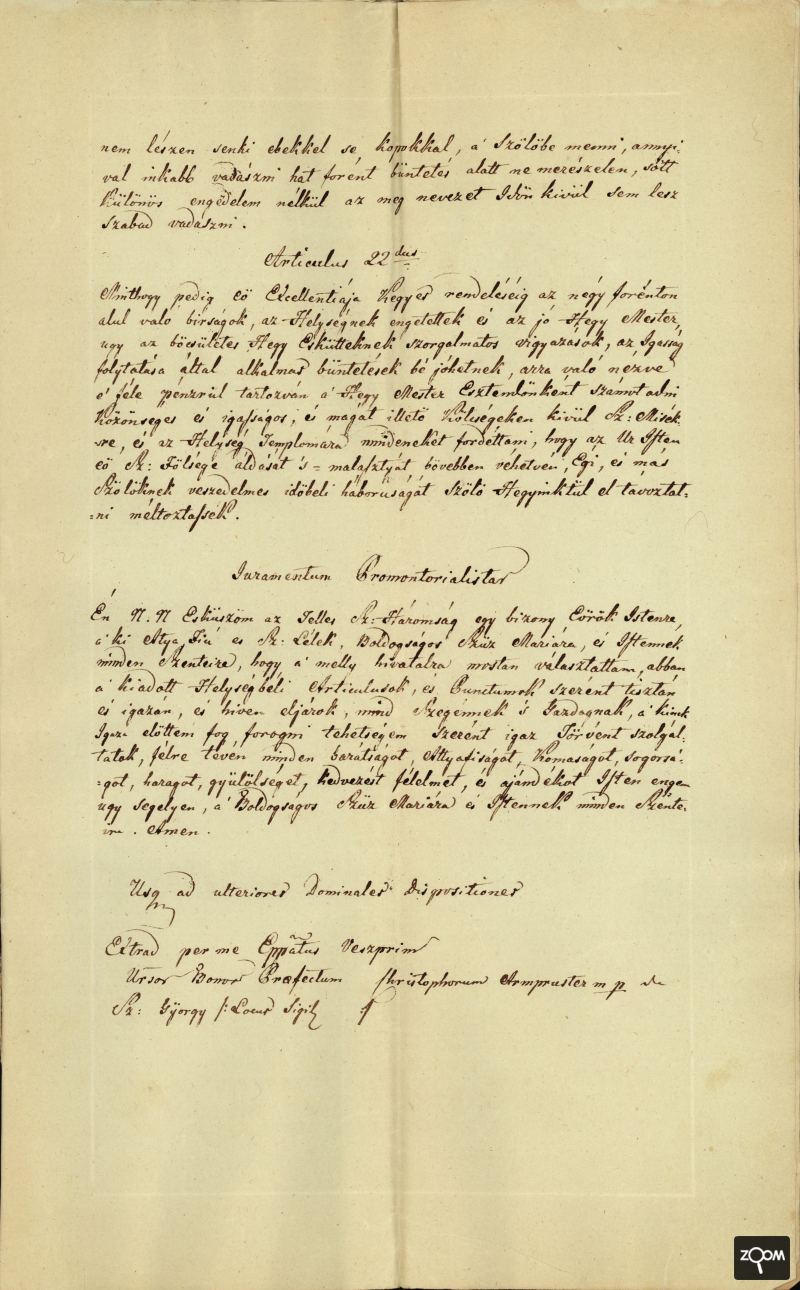 nem lészen senki ebekkel se kopokkal, á Szölöbe menni, annyi-
val inkabb vadászni hat forént büntetés alatt ne merészelen, sött
Különös engedelem nélkül az meg nevezet Idön kivül sem lesz
szabad vadászni.
Articulus 22dus
Minthogy pedig eö Excellentiája Kegyes rendeléséig az négy forénton
alul való birságok, az Helységnek engettettek és az jó Hegy Mester,
ugy az böcsületes Hegy Eskütteknek szorgalmatos vigyazások, az Igasság
folytatása által alkalmas büntetések bé jöhetnek, arra való nézve
e' féle pénzrül tartozván á Hegy Mester Esztendönként számot adni
Közönséges és igasságos, és magát illetö Költségeken kivül Sz: Misék
-re, és az Helység Templomára mindeneket fordéttani, hogy az Ur Isten
eö Sz: Fölsége áldását 's= malasztyát bövebben véhetvén, Égi, és más
Szölöknek veszedelmes idöbeli háboruságát Szölö Hegyinktül el tavoztat=
=ni méltoztassék.
Iuramentum Promontorialistar
Én N. N Esküszöm az Telles Sz: Háromság egy bizony Eörök Istenre,
a' ki Atya, Fiú es Sz: Lélek, Boldogságos Szüz Mariára, és Istennek
minden Szenteire, hogy á melly hivatalra mostan választattam, abban
á kiadott Helységbéli Articulusok, és Punctumok szerént tisztán
és igazán, és hiven eljárok, mind Szegénnek 's Gazdagnak, á kinek
Igaza elöttem fog forogni tehetségem szerént igaz Törvént szolgál-
tatok, félre tévén minden barátságot, Attyafiságot, Komaságot, sogorsá-
=got, haragot, gyülölséget, kedvezést félelmet, és ajándékot Isten engem
ugy segelyen, á Boldogságos Szüz Mariára és Istennek minden Szente-
ire. Amen.
Usq ad ulteriores Dominales Dispositiones
Extrad per me Eppatus Veszprim
Ursor Bonor Præfectum Christophorum Armpruster m p de
Sz: György /: Locus Sigil
ZOOM